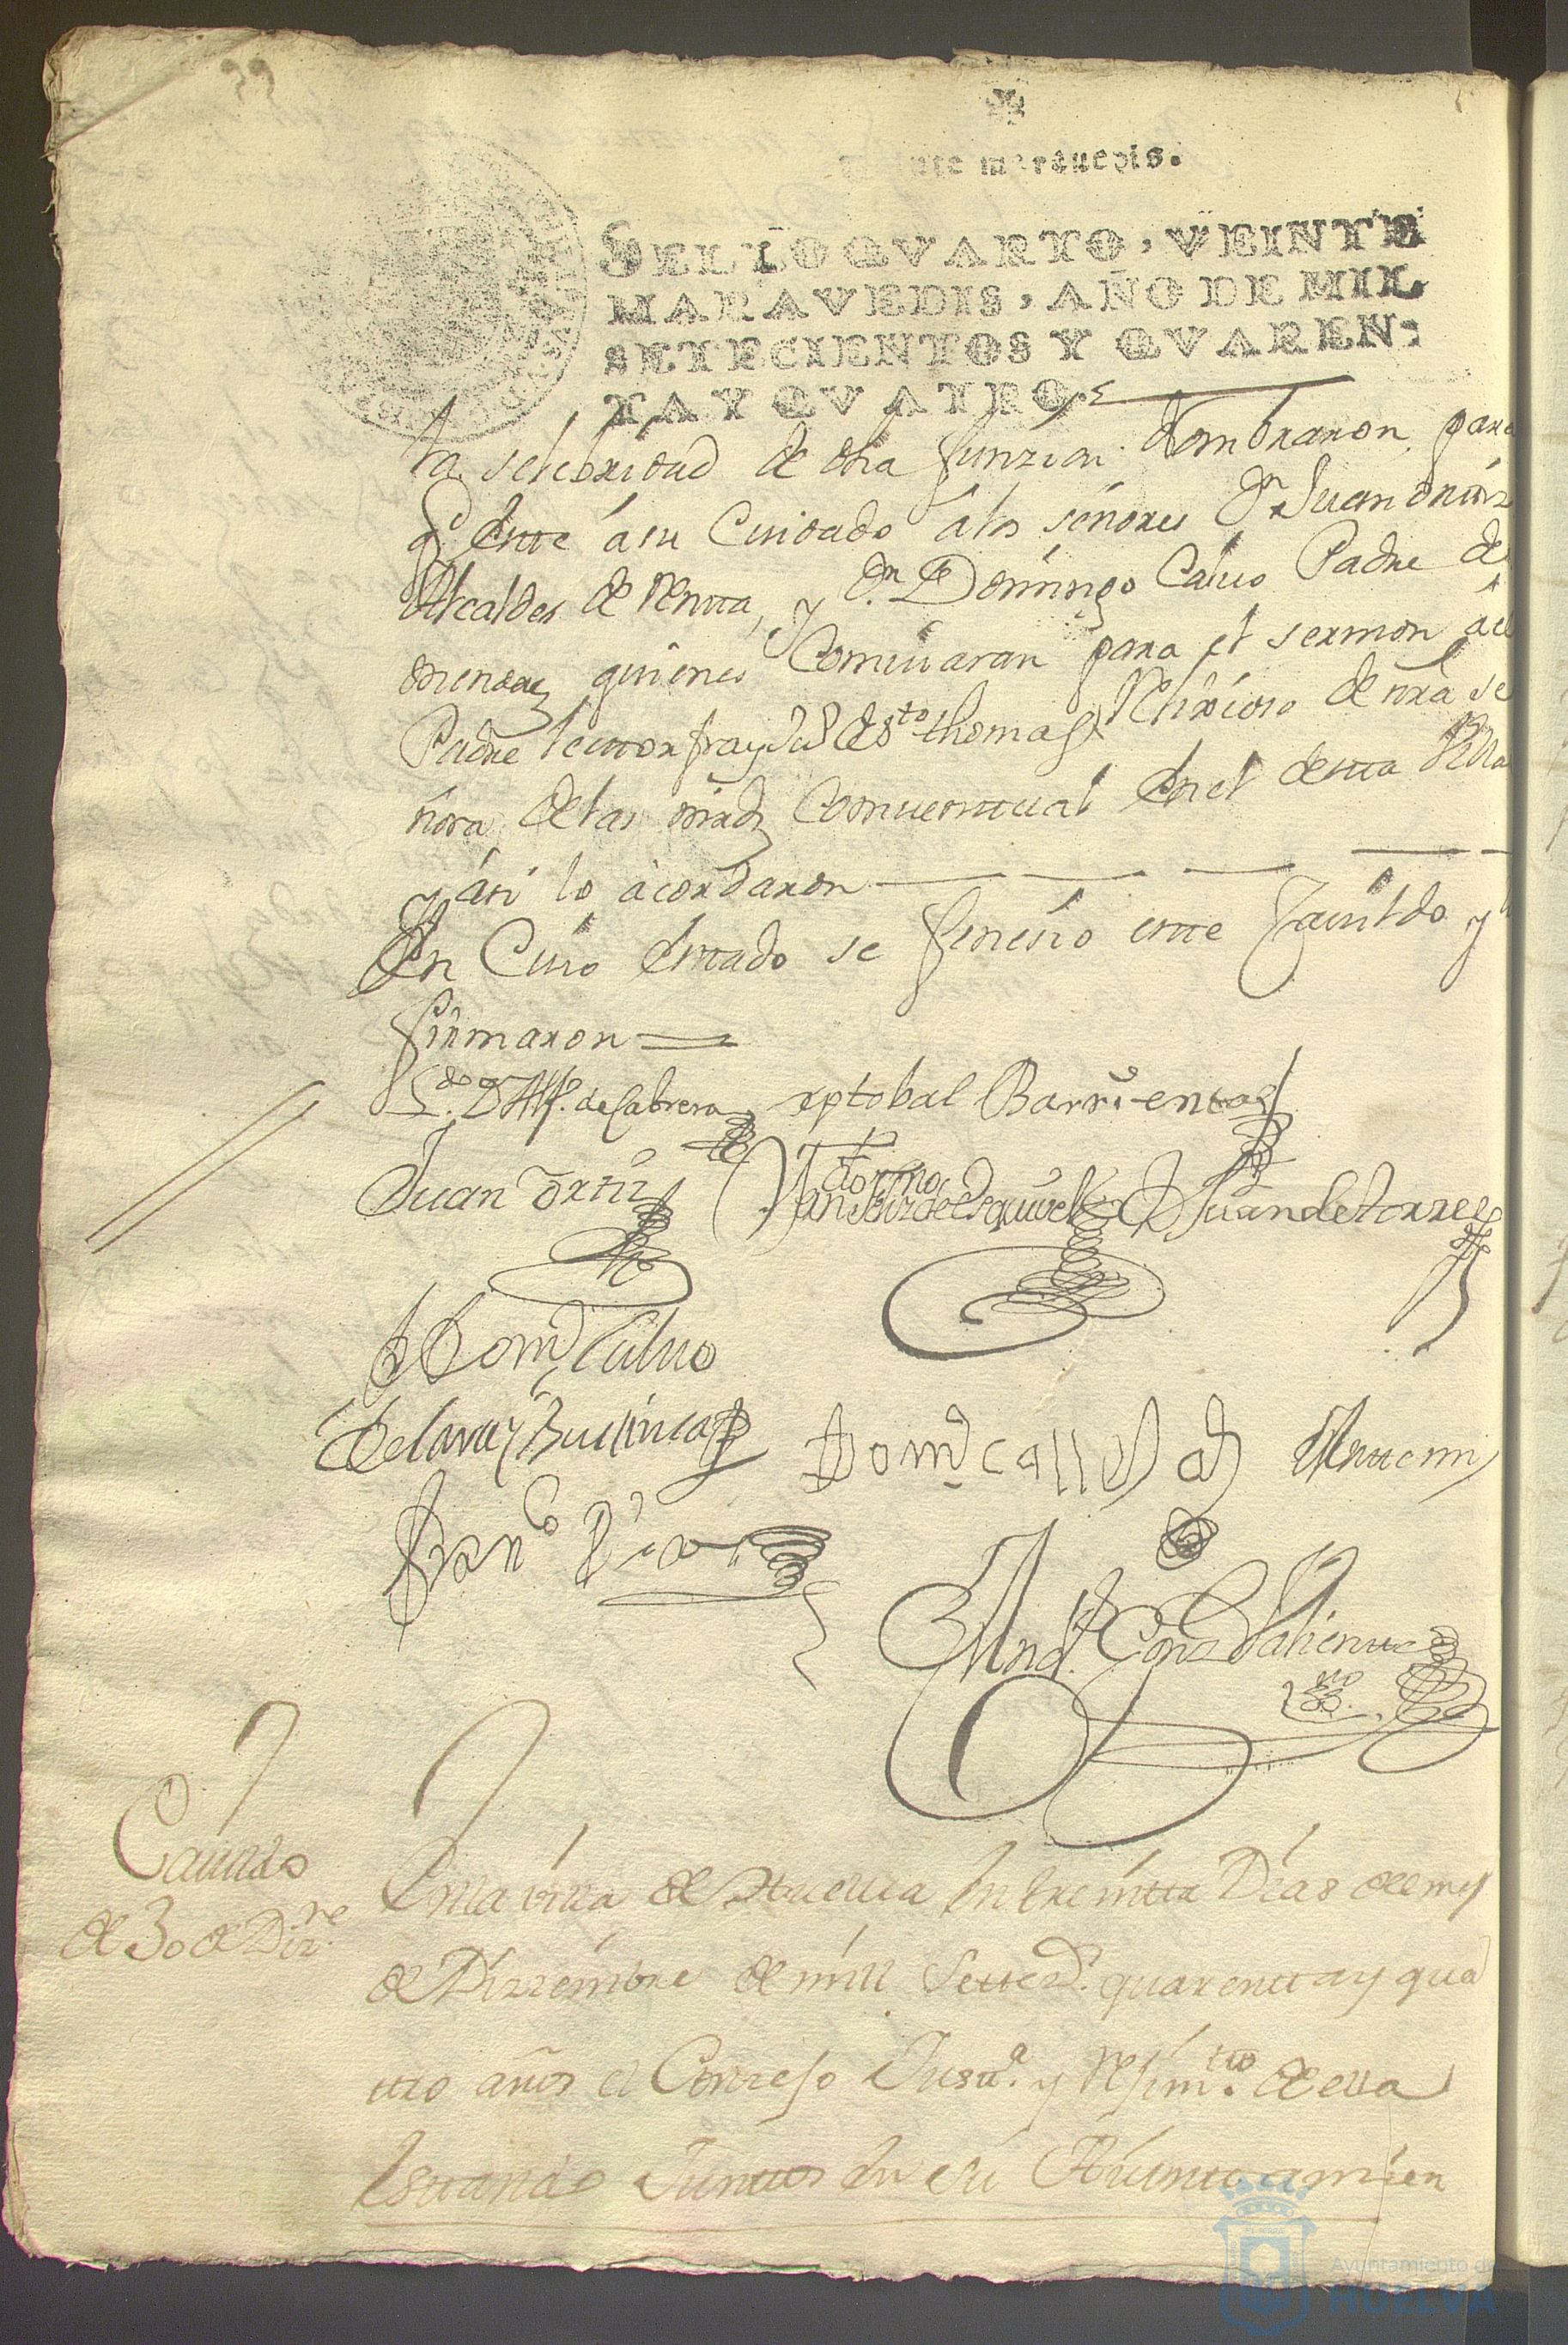 59
maravedis.
SELLO QVARTO, VEINTE
MARAVEDIS, AÑO DE MIL
SETECIENTOS Y QVAREN-
TA Y QVATRO.
la selebridad de dha funzion nombraron para
qe. este ásu Cuidado álos señores Dn. Juan ortiz
Alcalde de Renta, y Dn. Domingo Calvo Padre de
menores quienes Comvidaran para el sermon ael
Padre lector fray Jud de sto thomas Relixioso de nra se
ñora de las mrds Comventual en el de esta villa
y ási lo ácordaron
En Cuio estado se fenesio este Cavildo y lo
firmaron
Ldo. D Alfo. de Cabrera xptobal Barrientos
Juan ortiz Juan de torres
Domo Calvo
Domo calle Ante mi
Frano Dias
Andr. Gonz Valiente
esno.
Cavildo
de 30 de Dizre
En la villa de Huelva En treintta Dias del mes
de Dizziembre de mill Settezs. quarentta y qua
ttro años el Conzejo Justa. y Rejimto. de ella
Estando Junttos En su Aiunttamien
Ayuntamiento de
HUELVA